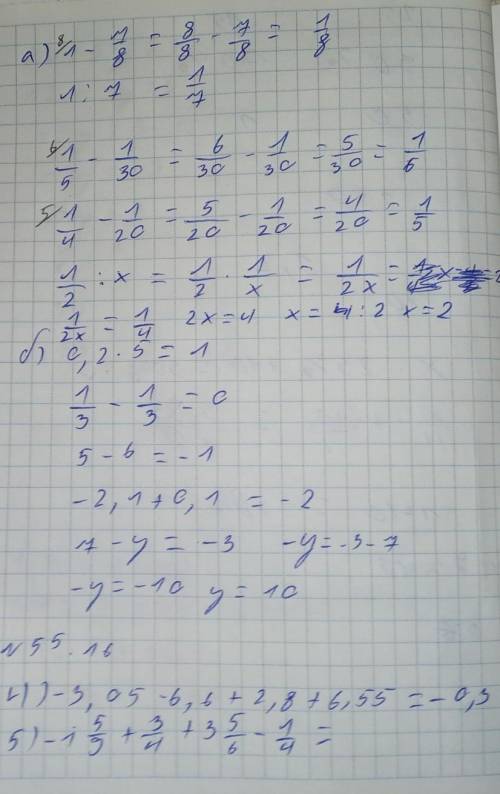 а) 1 - 7/8 = 8/8 - 7/8 = 1/8
1 : 7 = 1/7
1/5 - 1/30 = 6/30 - 1/30 = 5/30 = 1/6
1/4 - 1/20 = 5/20 - 1/20 = 4/20 = 1/5
1/2 : x = 1/2 · 1/x = 1/2x =
1/2x = 1/4 2x = 4 x = 4 : 2 x = 2
б) 0,2 · 5 = 1
1/3 - 1/3 = 0
5 - 6 = -1
-2,1 + 0,1 = -2
7 - y = -3 -y = -3 - 7
-y = -10 y = 10
N 55.16
4) -3,05 - 6,6 + 2,8 + 6,55 = -0,3
5) -1 5/9 + 3/4 + 3 5/6 - 1/4 =